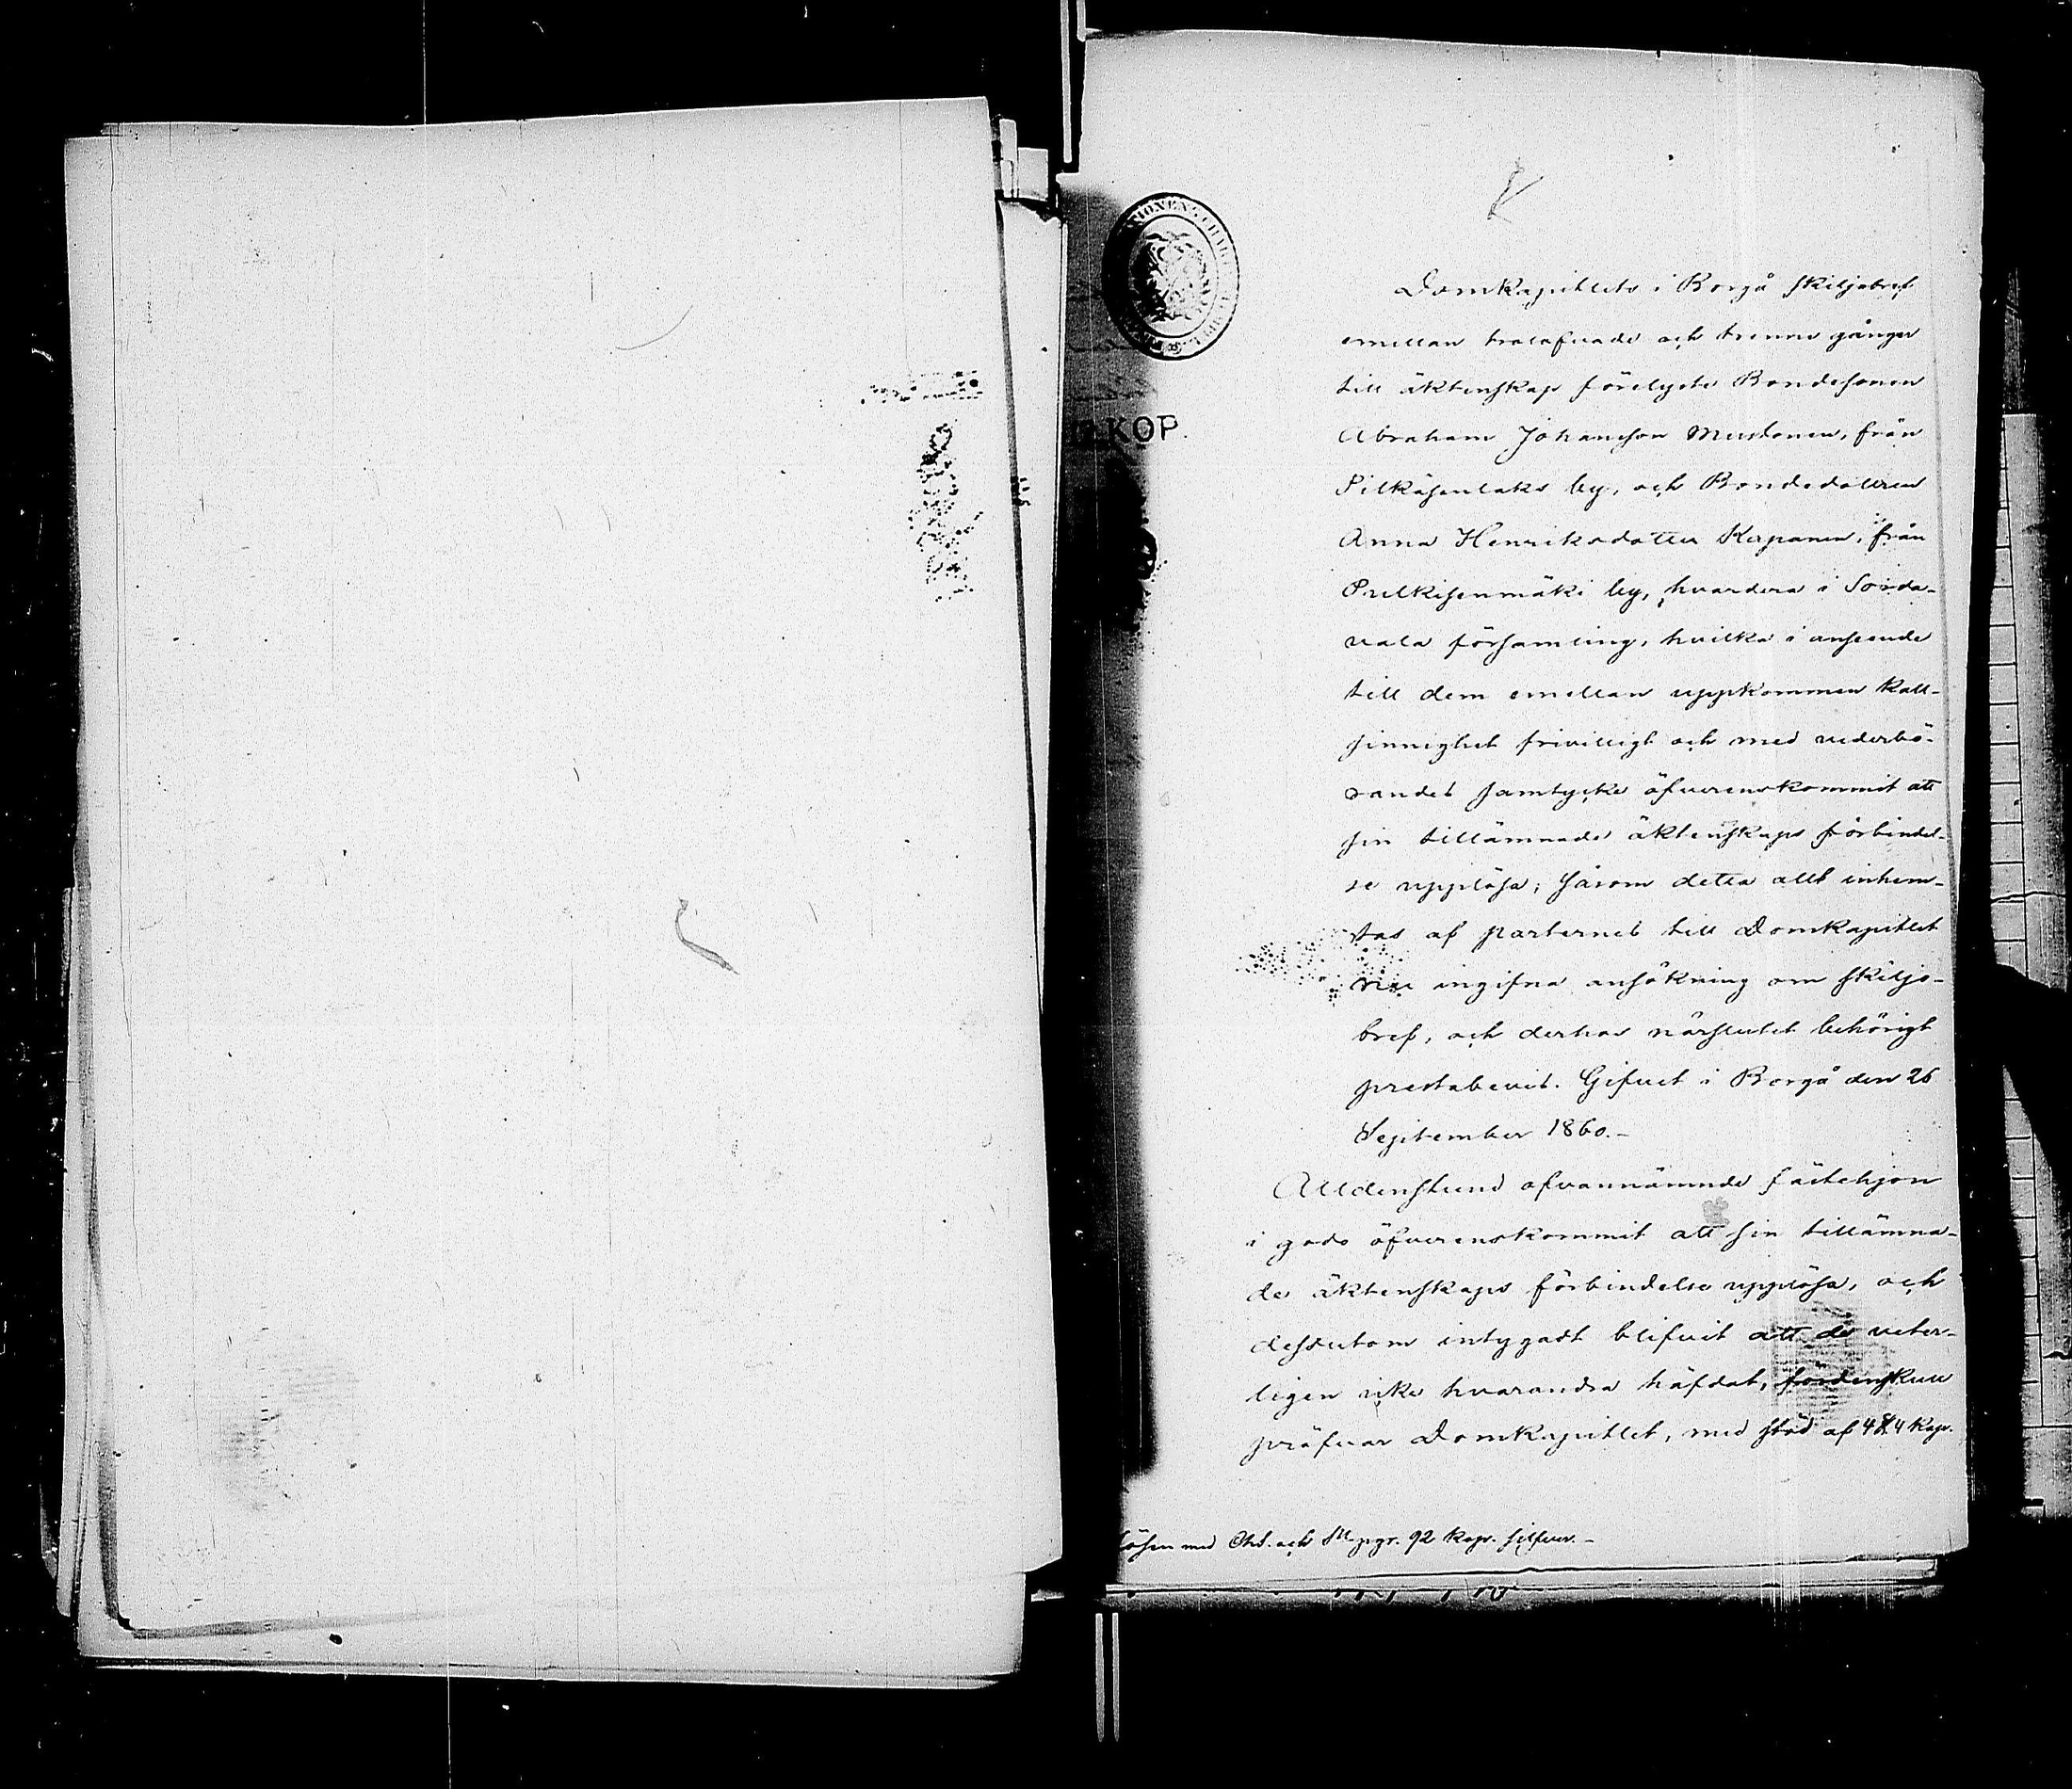 KOP.
Domkapitlets i Borgå skiljobref
emellan trolofvade och trenne gånger
till äktenskap förelyste Bondesonen
Abraham Johansson Mustonen, från
by, och Bondedottren
Anna Henriksdotter från
by, hvardera i Sorda-
vala församling, hvilka i anseende
till dem emellan uppkommen kall-
sinnighet frivilligt och med vederbö-
randes samtycke öfverenskommit att
sin tillämnade äktenskaps förbindel-
se upplösa; såsom detta allt inhem-
tas af parternes till Domkapitlet
nu ingifna ansökning om skiljo-
bref, och derhos närslutet behörigt
prestabevis. Gifvet i Borgå den 26
September 1860.-
Alldenstund ofvannämnde fästehjon
i godo öfverenskommit att sin tillämna-
de äktenskaps förbindelse upplösa, och
dessutom intygadt blifvit att de veter-
ligen icke hvarandra häfdat, fördenskull
pröfvar Domkapitlet, med stöd af 4 § 4 Kap.
lösen med Ch. och 92 Kop. silfver.-